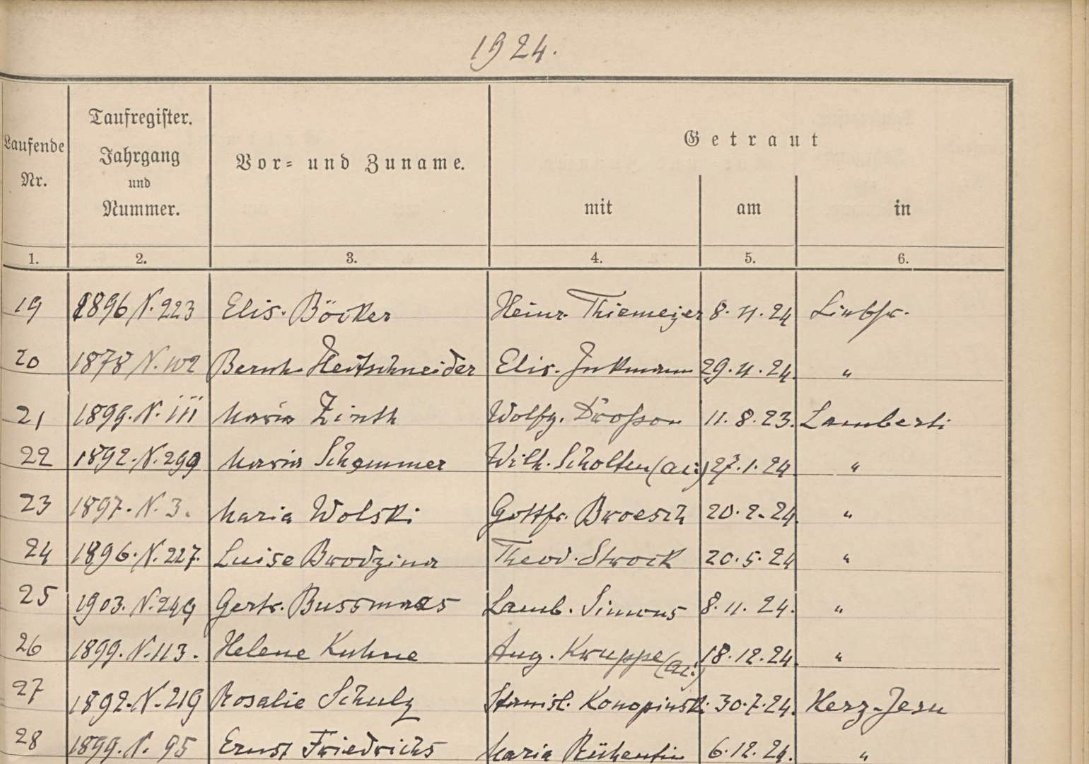 1924.
Laufende Nr. Taufregister. Jahrgang und Nummer. Vor- und Zuname. Getraut
mit am in
1. 2. 3. 4. 5. 6.
19 1896 N. 223 Elis. Böcker Heinr. Thiemeyer 8. 11. 24 Liebfr.
20 1878 N. 102 Bernh. Heitschneider Elis. Jukmann 29. 11. 24. "
21 1899. N. 111 Maria Zinth Wolfg. 11. 8. 23. Lamberti
22 1892. N. 299 Maria Schemmer Wilh. Scholten 27. 1. 24 "
23 1897. N. 3. Maria Wolski Gottfr. Broesch 20. 2. 24. "
24 1896. N. 227. Luise Brodzina Theod. Strock 20. 5. 24 "
25 1903. N. 249 Gertr. Bussmaas Lamb. Simons 8. 11. 24. "
26 1899. N. 113. Helene Kuhne Aug. Kruppe 18. 12. 24. "
27 1892. N. 219 Rosalie Schulz Stanisl. Konopinski 30. 7. 24. Herz-Jesu
28 1899. N. 95 Ernst Friedrichs Maria 6. 12. 24. "